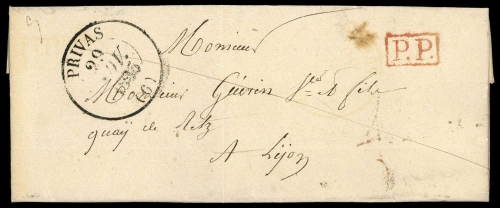 PRIVAS
29
NOV.
(6)
P.P.
Monsieur
Monsieur Guérin Vve & fils
quay de Retz
A Lyon